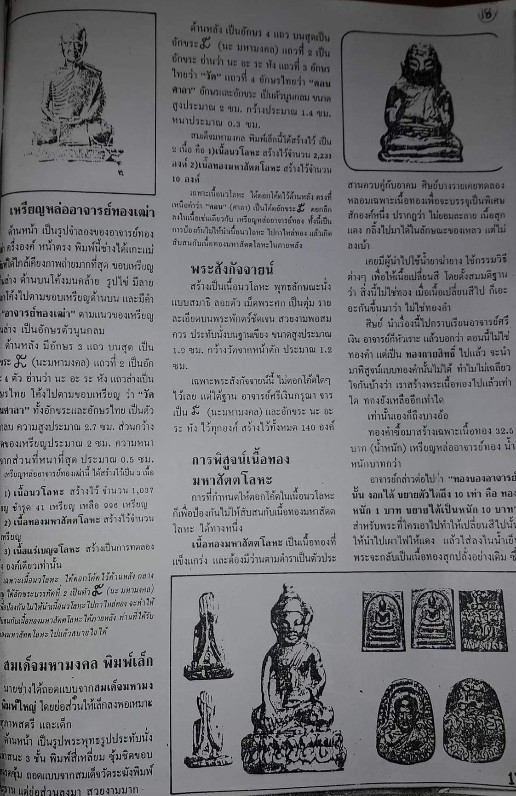 18
เหรียญหล่ออาจารย์ทองเฒ่า
ด้านหน้า เป็นรูปจำลองของอาจารย์ทอง
ครึ่งองค์ หน้าตรง พิมพ์นี้ช่างได้แกะแม่
พิมพ์ได้ใกล้เคียงภาพถ่ายมากที่สุด ขอบเหรียญ
ด้านบนโค้งมนคล้าย รูปไข่ มีลาย
โค้งไปตามขอบเหรียญด้านบน และมีคำ
"อาจารย์ทองเฒ่า" ตามแนวของเหรียญ
ล่าง เป็นอักษรตัวนูนกลม
ด้านหลัง มีอักษร 3 แถว บนสุด เป็น
(นะมหามงคล) แถวที่ 2 เป็นอัก
4 ตัว อ่านว่า นะ อะ ระ หัง แถวล่างเป็น
ไทย โค้งไปตามขอบเหรียญ ว่า "วัด
ดอนศาลา" ทั้งอักขระและอักษรไทย เป็นตัว
กลม ความสูงประมาณ 2.7 ซม. ส่วนกว้าง
ของเหรียญประมาณ 2 ซม. ความหนา
จากส่วนที่หนาที่สุด ประมาณ 0.5 ซม.
เหรียญหล่ออาจารย์ทองเฒ่านี้ ได้สร้างไว้เป็น 3 เนื้อ
1) เนื้อนวโลหะ สร้างไว้ จำนวน 1,037
ชำรุด 41 เหรียญ เหลือ 996 เหรียญ
2) เนื้อทองมหาสัตตโลหะ สร้างไว้จำนวน
เหรียญ
3) เนื้อสแร่เบญจโลหะ สร้างเป็นการทดลอง
องค์เดียวเท่านั้น
เฉพาะเนื้อนวโลหะ ได้ตอกโค้ดไว้ด้านหลัง กลาง
ใต้อักขระแถวที่ 2 เป็นตัว (นะ มหามงคล)
สมเด็จมหามงคล พิมพ์เล็ก
นายช่างได้ถอดแบบจากสมเด็จมหามง
พิมพ์ใหญ่ โดยย่อส่วนให้เล็กลงพอเหมาะ
สุภาพสตรี และเด็ก
ด้านหน้า เป็นรูปพระพุทธรูปประทับนั่ง
อาสนะ 3 ชั้น พิมพ์สี่เหลี่ยม ซุ้มชิดขอบ
ถอดแบบจากสมเด็จวัดระฆังพิมพ์
ฐาน แต่ย่อส่วนลงมา สวยงามมาก
ด้านหลัง เป็นอักษร 4 แถว บนสุดเป็น
อักขระ (นะ มหามงคล) แถวที่ 2 เป็น
อักขระ อ่านว่า นะ อะ ระ หัง แถวที่ 3 อักษร
ไทยว่า "วัด" แถวที่ 4 อักษรไทยว่า "ดอน
ศาลา" อักษรและอักขระ เป็นตัวนูนกลม ขนาด
สูงประมาณ 2 ซม. กว้างประมาณ 1.4 ซม.
หนาประมาณ 0.3 ซม.
สมเด็จมหามงคล พิมพ์เล็กนี้ได้สร้างไว้ เป็น
2 เนื้อ คือ 1)เนื้อนวโลหะ สร้างไว้จำนวน 2,231
องค์ 2)เนื้อทองมหาสัตตโลหะ สร้างไว้จำนวน
10 องค์
เฉพาะเนื้อนวโลหะ ได้ตอกโค้ดไว้ด้านหลัง ตรงที่
เหนือคำว่า "ดอน" (ศาลา) เป็นโค้ดอักขระ ตอกลึก
ลงในเนื้อเช่นเดียวกับ เหรียญหล่ออาจารย์ทอง ทั้งนี้เป็น
การป้องกันไม่ให้นำเนื้อนวโลหะ ไปกาไหล่ทอง แล้วเกิด
สับสนกับเนื้อทองมหาสัตตโลหะในภายหลัง
พระสังกัจจายน์
สร้างเป็นเนื้อนวโลหะ พุทธลักษณะนั่ง
แบบสมาธิ ลอยตัว เม็ดพระศก เป็นตุ่ม ราย
ละเอียดบนพระพักตร์ชัดเจน สวยงามพอสม
ควร ประทับนั่งบนฐานเขียง ขนาดสูงประมาณ
1.9 ซม. กว้างวัดจากหน้าตัก ประมาณ 1.2
ซม.
เฉพาะพระสังกัจจายน์นี้ ไม่ตอกโค้ดใดๆ
ไว้เลย แต่ใต้ฐาน อาจารย์ศรีเงินกรุณา จาร
เป็น (นะมหามงคล) และอักขระ นะ อะ
ระ หัง ไว้ทุกองค์ สร้างไว้ทั้งหมด 140 องค์
การพิสูจน์เนื้อทอง
มหาสัตตโลหะ
การที่กำหนดให้ตอกโค้ดในเนื้อนวโลหะ
ก็เพื่อป้องกันไม่ให้สับสนกับเนื้อทองมหาสัตต
โลหะ ได้ทางหนึ่ง
เนื้อทองมหาสัตตโลหะ เป็นเนื้อทองที่
แข็งแกร่ง และต้องมีว่านตามตำราเป็นตัวประ
สานควบคู่กับอาคม ศิษย์บางรายเคยทดลอง
หลอมเฉพาะเนื้อทองเพื่อจะบรรจุเป็นพิเศษ
สักองค์หนึ่ง ปรากฏว่า ไม่ยอมละลาย เนื้อสุก
แดง กลิ้งไปมาได้ในลักษณะของเหลว แต่ไม่
ลงเบ้า
เคยมีผู้นำไปใช้น้ำยาล้าง ใช้กรรมวิธี
ต่างๆ เพื่อให้เนื้อเปลี่ยนสี โดยตั้งสมมติฐาน
ว่า สิ่งนี้ไม่ใช่ทอง เมื่อเนื้อเปลี่ยนสีไป ก็เอะ
อะกันขึ้นมาว่า ไม่ใช่ทองคำ
ศิษย์ นำเรื่องนี้ไปกราบเรียนอาจารย์ศรี
เงิน อาจารย์ก็หัวเราะ แล้วบอกว่า ตอนนี้ไม่ใช่
ทองคำ แต่เป็น ทองกายสิทธิ์ ไปแล้ว จะนำ
มาพิสูจน์แบบทองคำนั้นไม่ได้ ทำไมไม่เฉลียว
ใจกันบ้างว่า เราสร้างพระเนื้อทองไปแล้วเท่า
ใด ทกงยังเหลืออีกเท่าใด
เท่านั้นเองก็ถึงบางอ้อ
ทองคำซื้อมาสร้างเฉพาะเนื้อทอง 32.5
บาท (น้ำหนัก) เหรียญหล่ออาจารย์ทอง น้ำ
หนักบาทกว่า
อาจารย์กล่าวต่อไปว่า "ทองของอาจารย์
นั้น งอกได้ ขยายตัวได้ถึง 10 เท่า คือ ทอง
หนัก 1 บาท ขยายได้เป็นหนัก 10 บาท"
สำหรับพระที่ใครเอาไปทำให้เปลี่ยนสีไปนั้น
ให้นำไปเผาไฟให้แดง แล้วใส่ลงในน้ำเย็น
พระจะกลับเป็นเนื้อทองสุกปลั่งอย่างเดิม